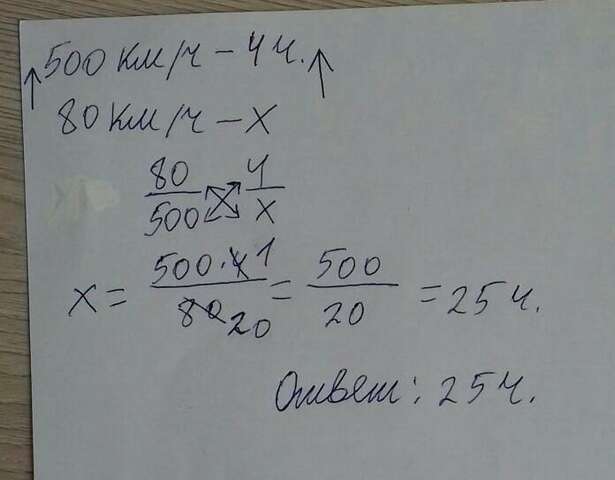 500 км/ч – 4 ч.
80 км/ч – х
80/500 4/х
х = 500·4 1/80 20 = 500/20 = 25 ч.
Ответ: 25 ч.